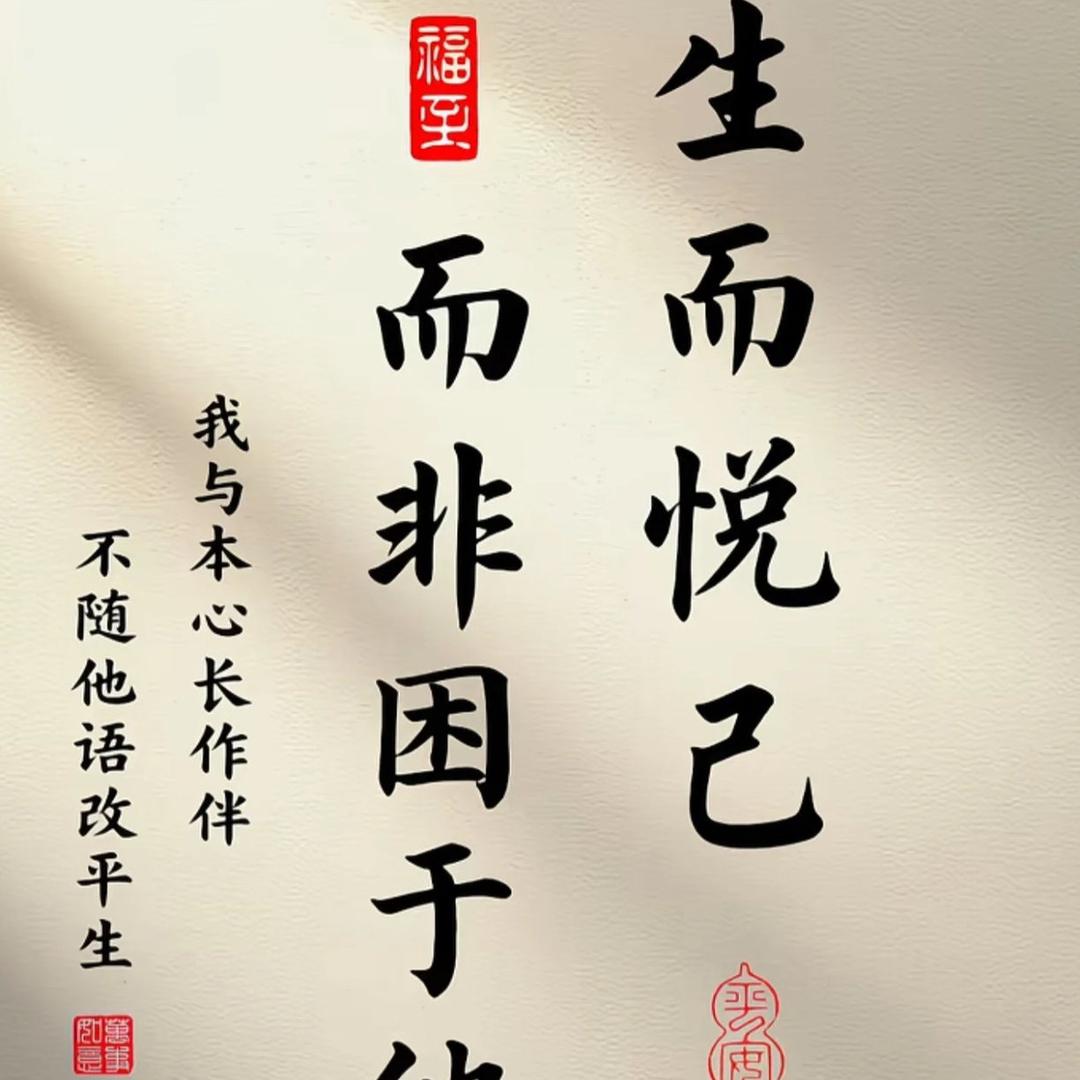 生而悦己
平安
福至
而非困于
我与本心长作伴
不随他语改平生
萬事如意